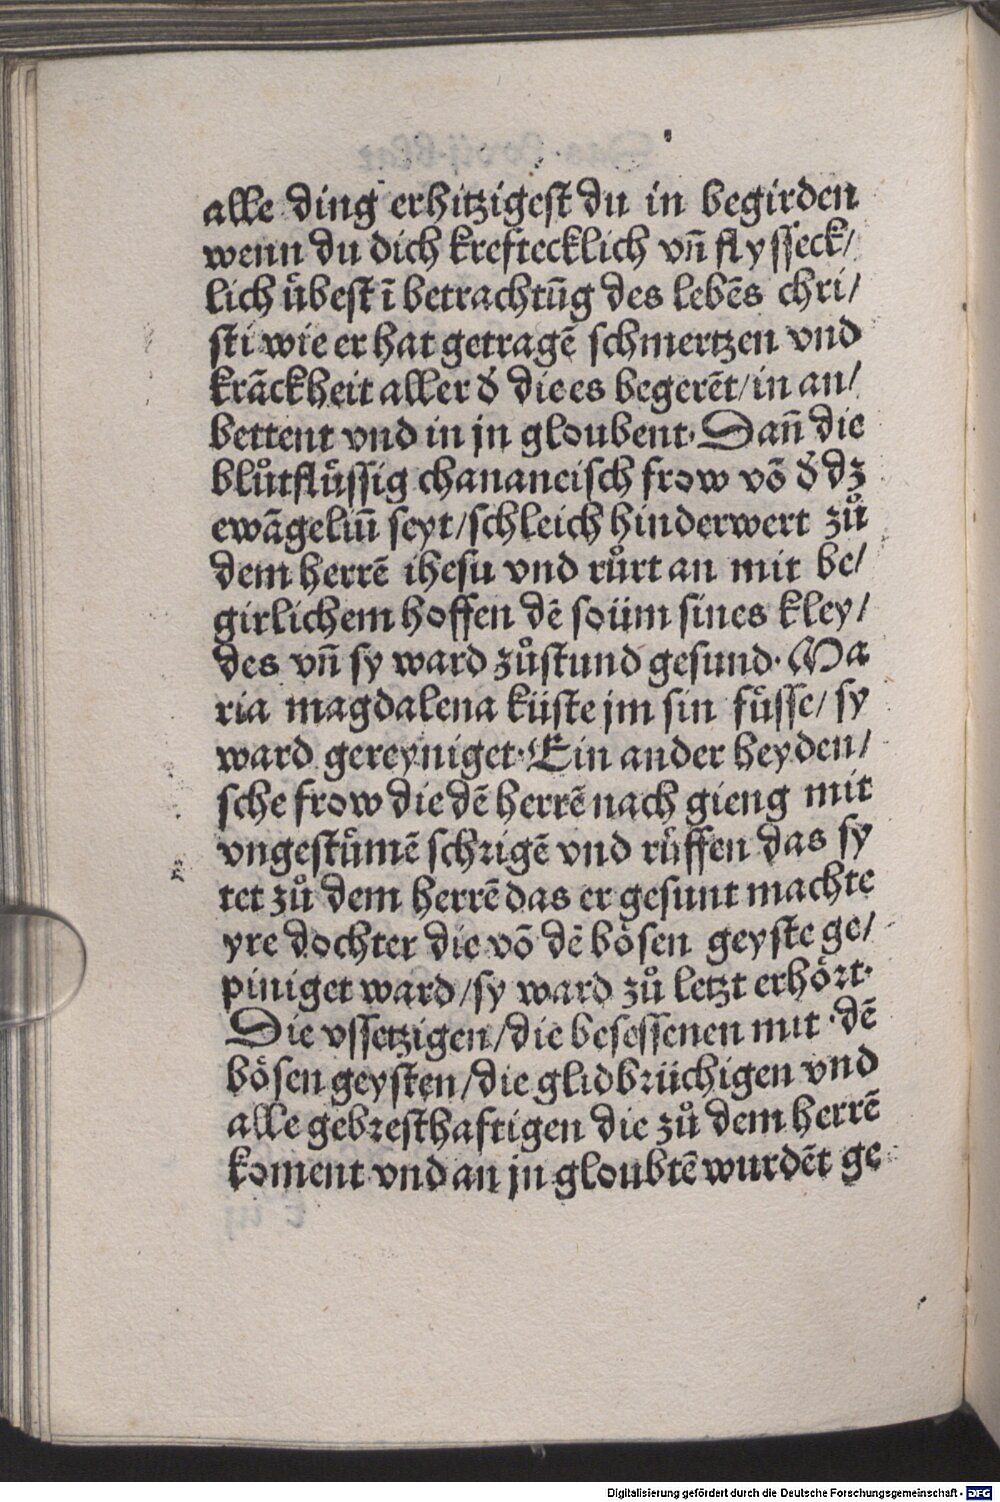 alle ding erhitzigest du in begirden
wenn du dich kreftecklich vn̄ flysseck/
lich uͤbest ī betrachtūg des lebēs chri/
sti wie er hat getragē schmertzen vnd
krāckheit aller d̄ die es begerēt/in an/
bettent vnd in jn gloubent. Dan̄ die
bluͦtfluͤssig chananeisch frow vō d̄ dz
ewāgeliū seyt/schleich hinderwert zuͦ
dem herrē ihesu vnd ruͦrt an mit be/
girlichem hoffen dē soüm sines kley/
des vn̄ sy ward zuͦstund gesund. Ma
ria magdalena küste jm sin fuͤsse/ sy
ward gereyniget. Ein ander heyden/
sche frow die dē herrē nach gieng mit
vngestuͤmē schrigē vnd ruͤffen das sy
tet zuͦ dem herrē das er gesunt machte
yre dochter die vō dē boͤsen geyste ge/
piniget ward/sy ward zuͦ letzt erhoͤrt.
Die vssetzigen/die besessenen mit dē
boͤsen geysten/die glidbrüchigen vnd
alle gebresthaftigen die zuͦ dem herrē
koment vnd an jn gloubtē wurdēt ge
Digitalisierung gefördert durch die Deutsche Forschungsgemeinschaft - DFG